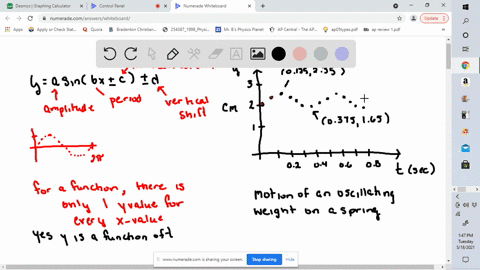 Desmos | Graphing Calculator
Control Panel
Numerade Whiteboard
numerade.com/answers/whiteboard/
Apps
Apply or Check Stat...
District
Bradenton Christian...
Mr. B's Physics Planet
AP Central - The AP...
ap05types.pdf
ap review 1.pdf
y = a sin(bx ± c) ± d
amplitude
period
vertical
shift
2π
for a function, there is
only 1 y value for
every x-value
yes y is a function of t
y
(0.125, 2.35)
3
cm
2
1
(0.375, 1.65)
0.2 0.4 0.6 0.8
t (sec)
motion of an oscillating
weight on a spring
www.numerade.com is sharing your screen.
Stop sharing
Hide
1:47 PM
Tuesday
5/18/2021